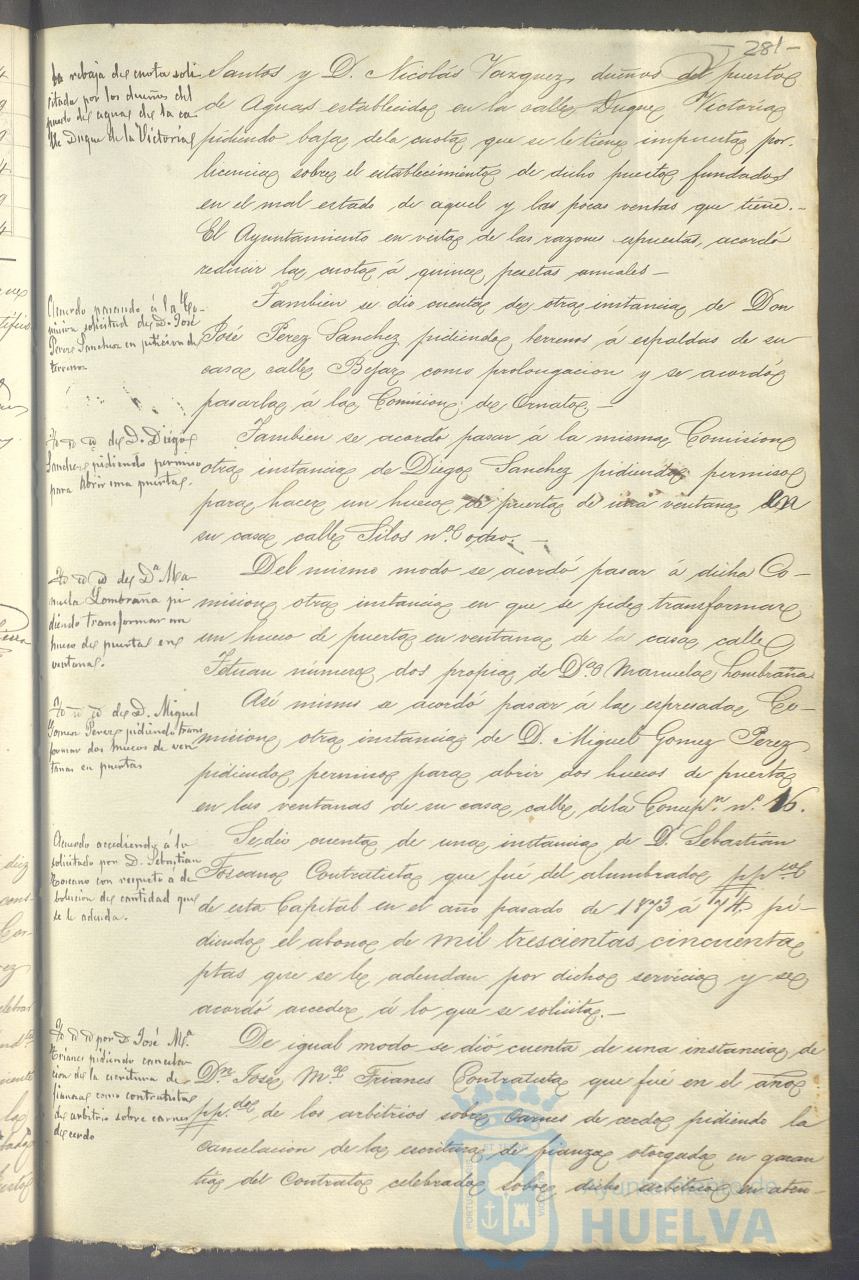 281-
la rebaja de cuota soli-
citada por los dueños del
puesto de aguas de la ca-
lle Duque de la Victoria
Santos y D. Nicolás Vazquez, dueños del puesto
de Aguas establecido en la calle Duque Victoria
pidiendo baja dela cuota que se le tiene impuesta por
licencia sobre el establecimiento de dicho puesto fundados
en el mal estado de aquel y las pocas ventas que tiene.-
El Ayuntamiento en vista de las razones espuestas, acordó
reducir la cuota á quince pesetas anuales-
Acuerdo pasando á la Co-
mision solicitud de D. José
Perez Sanchez en peticion de
terrenos
Tambien se dio cuenta de otra instancia de Don
José Perez Sanchez pidiendo terrenos a espaldas de su
casa calle Bejar como prolongacion y se acordó
pasarla a la Comision de Ornato.-
Id id id de D. Diego
Sanchez pidiendo permiso
para abrir una puerta.
Tambien se acordó pasar á la misma Comision
otra instancia de Diego Sanchez pidiendo permiso
para hacer un hueco de puerta de una ventana en
su casa calle Silos nº ocho.-
Id id id de Dª Ma-
nuela Lombraña pi-
diendo transformar un
hueco de puerta en
ventana.
Del mismo modo se acordó pasar á dicha Co-
mision otra instancia en que se pide transformar
un hueco de puerta en ventana de la casa calle
Tetuan número dos propia de Dª Manuela Lombraña
Id id id de D. Miguel
Gomez Perez pidiendo trans
formar dos huecos de ven-
tanas en puertas
Asi mismo se acordó pasar á la espresada Co-
mision otra instancia de D. Miguel Gomez Perez
pidiendo permiso para abrir dos huecos de puerta
en las ventanas de su casa calle dela Concepn nº 16.
Acuerdo accediendo á lo
solicitado por D. Sebastian
Toscano con respecto a de
bolucion de cantidad que
se le adeuda.
Se dió cuenta de una instancia de D. Sebastian
Toscano Contratista que fué del alumbrado pp.
de esta Capital en el año pasado de 1873 á 74 pi-
diendo el abono de mil trescientas cincuenta
ptas que se le adeudan por dicho servicio y se
acordó acceder á lo que se solicita.-
Id id id por D José Mª
Trianes pidiendo cancela-
cion de la escritura de
fianza como contratista
de arbitrio sobre carnes
de cerdo
De igual modo se dió cuenta de una instancia de
Dn José Mª Trianes Contratista que fué en el año
pp.do de los arbitrios sobre carnes de cerdo pidiendo la
cancelacion de la escritura de fianza otorgada en garan
tia del contrato celebrado sobre dicho arbitrio en aten-
Ayuntamiento de
HUELVA